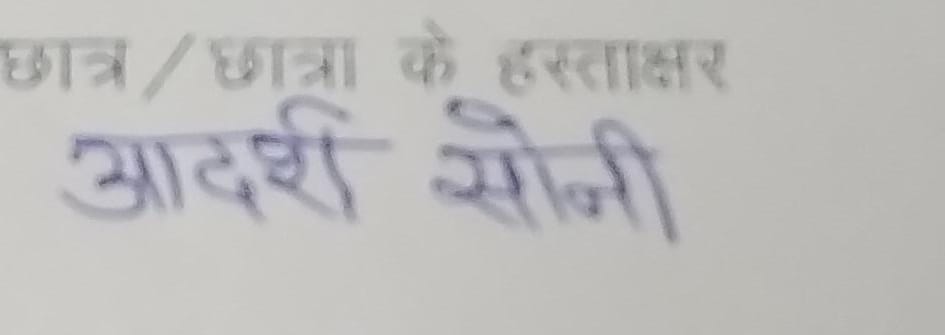 छात्र / छात्रा के हस्ताक्षर
आदर्श सोनी